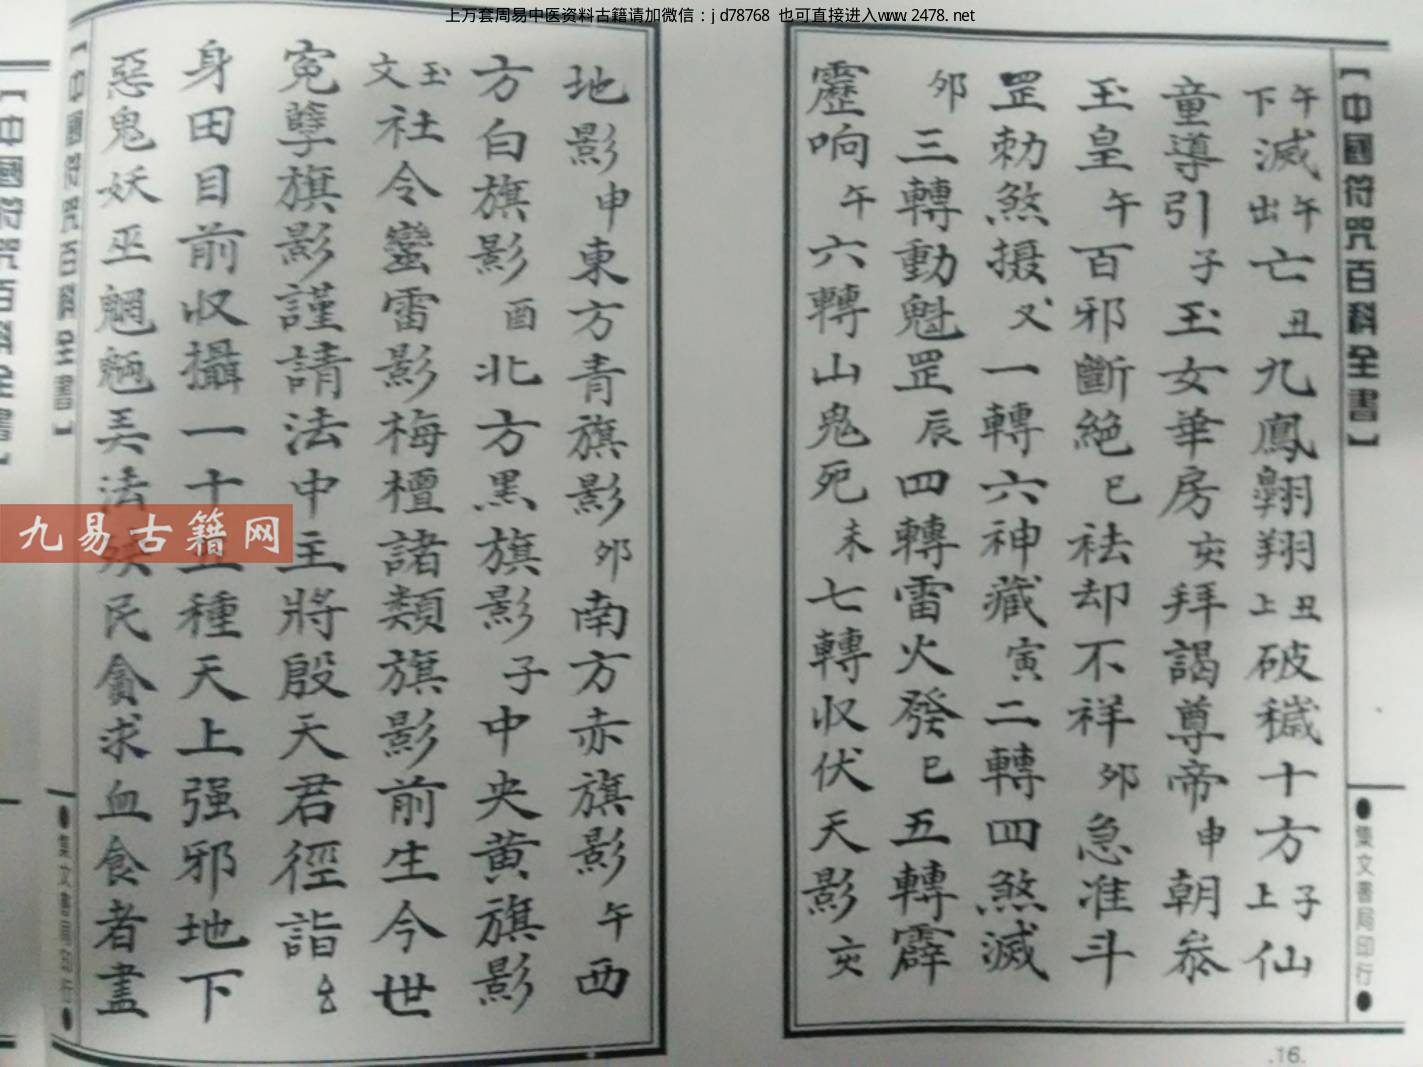 上万套周易中医资料古籍请加微信：jd78768 也可直接进入www.2478.net
【中國符咒百科全書】
午下滅午出亡丑九鳳翱翔丑上破穢十方子上仙
童導引子玉女華房亥拜謁尊帝申朝叅
玉皇午百邪斷絕巳祛却不祥夘急准斗
罡勅煞摄义一轉六神藏寅二轉四煞滅
夘三轉動魁罡辰四轉雷火發巳五轉霹
靂响午六轉山鬼死未七轉収伏天影亥
●集文書局印行●
.16.
地影申東方青旗影夘南方赤旗影午西
方白旗影酉北方黑旗影子中央黄旗影
玉文社令蠻雷影梅檀諸類旗影前生今世
寃孽旗影謹請法中主將殷天君徑詣
身田目前収攝一十五種天上强邪地下
惡鬼妖巫魍魎弄法殃民貪求血食者盡
【中國符咒百科全書】
●集文書局印行●
【中國符咒百科全書】
九易古籍网